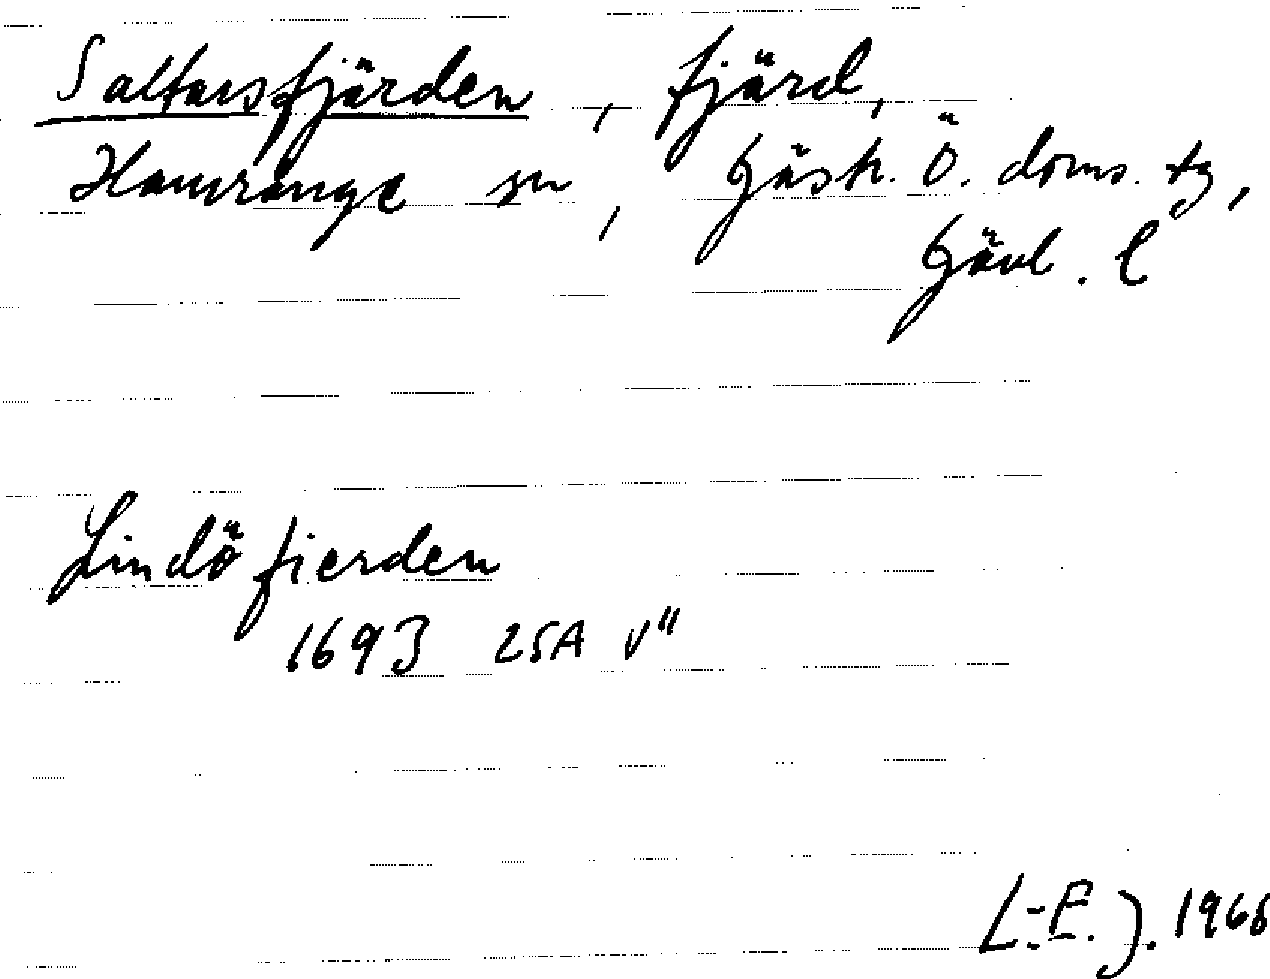 Saltarsfjärden, fjärd,
Hamrånge sn, Gästr. Ö. doms. tg,
Gävl. l
Lindö fierden
1693 25A v"
L.-E. J. 1966